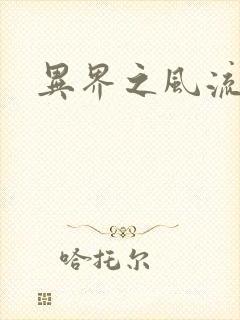 異界之風流
哈托尔